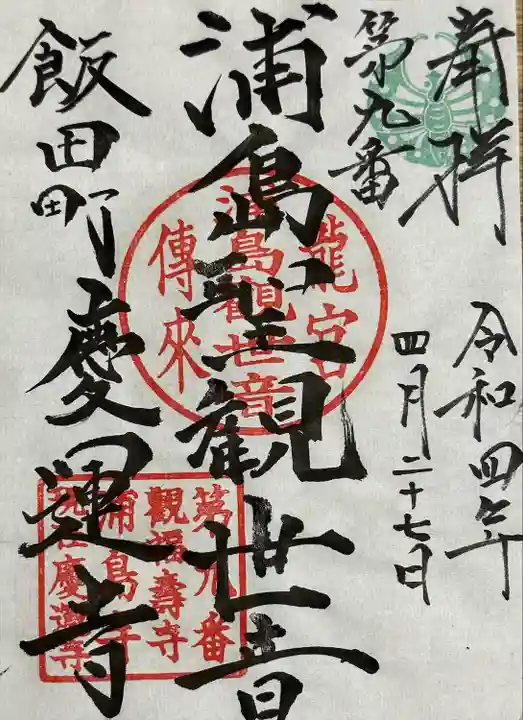 奉拝
令和四年
四月二十七日
第九番
浦島聖観世音
飯田町慶運寺
龍宮
浦島觀世音
傳來
第九番
觀福壽寺
浦島寺
慶運寺